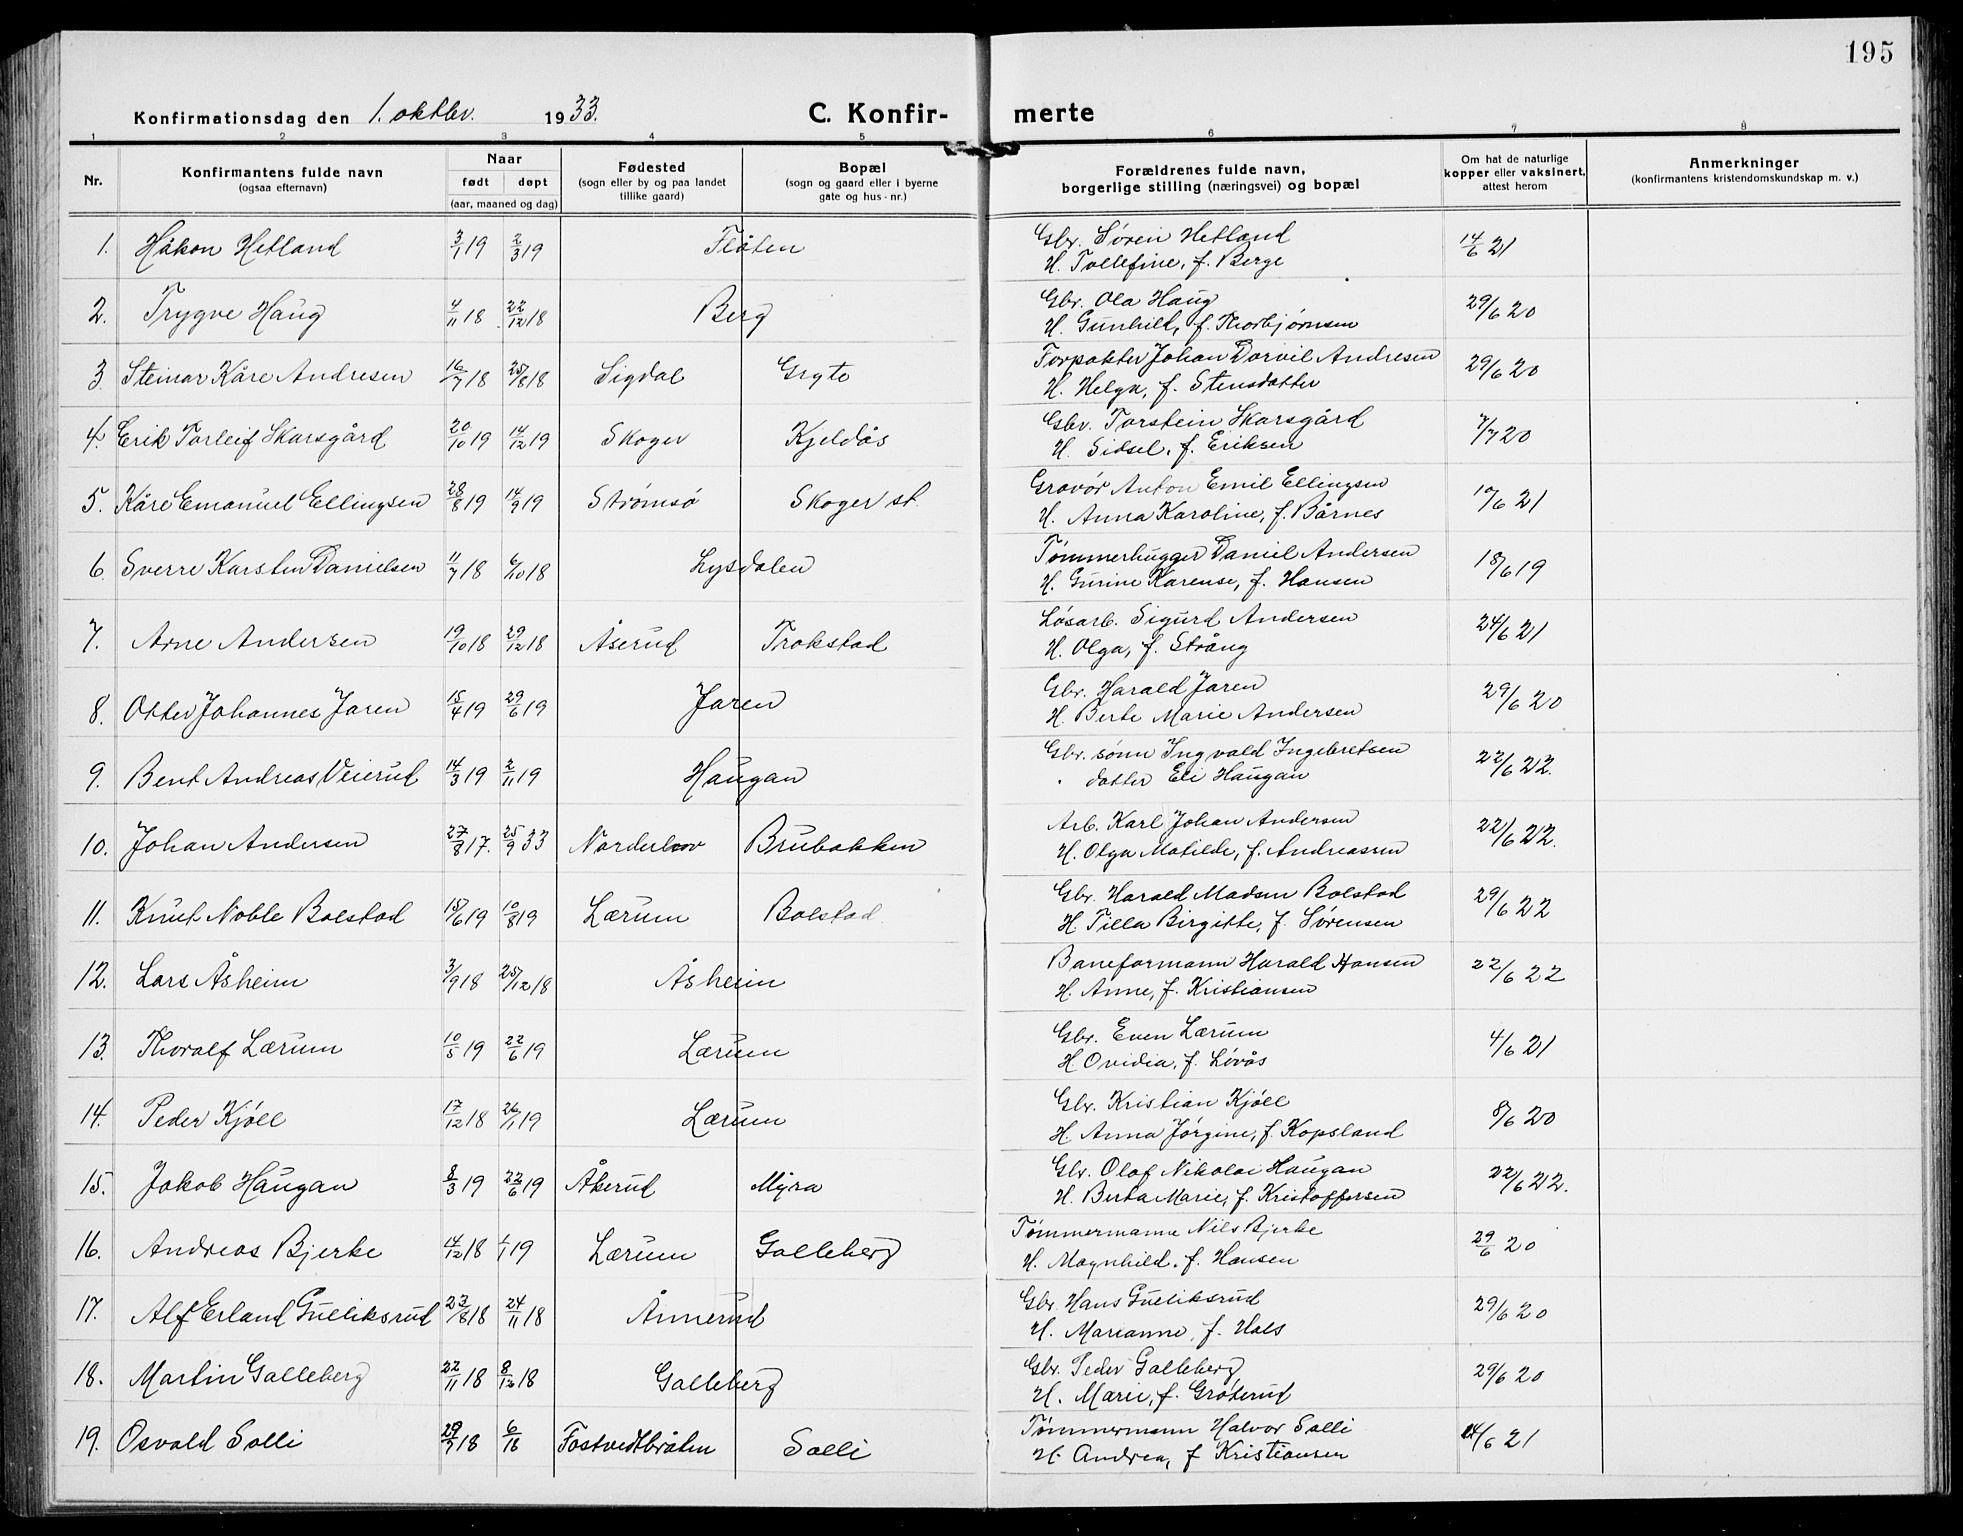 195
Konfirmationsdag den 1. oktbr. 1933.
C. Konfir- merte
1 2 3 4 5 6 7 8
Nr.
Konfirmantens fulde navn
(ogsaa efternavn)
Naar
født døpt
(aar, maaned og dag)
Fødested
(sogn eller by og paa landet
tillike gaard)
Bopæl
(sogn og gaard eller i byerne
gate og hus-nr.)
Forældrenes fulde navn,
borgerlige stilling (næringsvei) og bopæl
Om hat de naturlige
kopper eller vaksinert,
attest herom
Anmerkninger
(konfirmantens kristendomskundskap m. v.)
1. Håkon Hetland 3/1 19 2/3 19 Flåten Gbr. Søren Hetland 14/6 21
H. Tollefine, f. Berge
2. Trygve Haug 4/11 18 22/12 18 Berg Gbr. Ola Haug 29/6 20
H. Gunhild, f. Thorbjørnsen
3. Steinar Kåre Andresen 16/7 18 25/8 18 Sigdal Gryte Forpakter Johan Dorvil Andresen 29/6 20
H. Helga, f. Stensdatter
4. Erik Torleif Skarsgård 20/10 19 14/12 19 Skoger Kjeldås Gbr. Torstein Skarsgård 7/7 20
H. Sidsel, f. Eriksen
5. Kåre Emanuel Ellingsen 28/8 19 14/9 19 Strømsø Skoger st. Gravør Anton Emil Ellingsen 10/6 21
H. Anna Karoline, f. Bårnes
6. Sverre Karsten Danielsen 11/7 18 6/10 18 Lysdalen Tømmerhugger Daniel Andersen 18/6 19
H. Gurine Karense, f. Hansen
7. Arne Andersen 19/10 18 29/12 18 Åserud Trokstad Løsarb. Sigurd Andersen 24/6 21
H. Olga, f. Strång
8. Otter Johannes Jaren 15/4 19 29/6 19 Jaren Gbr. Harald Jaren 29/6 20
H. Berte Marie Andersen
9. Bent Andreas Veierud 14/3 19 2/11 19 Haugan Gbr. sønn Ingvald Ingebretsen 22/6 22.
" datter Eli Haugan
10. Johan Andersen 27/8 17. 25/9 33 Norderhov Brubakken Arb. Karl Johan Andersen 22/6 22.
H. Olga Matilde, f. Andreassen
11. Knut Noble Bolstad 15/6 19 10/8 19 Lærum Bolstad Gbr. Harald Madsen Bolstad 29/6 22
H. Tilla Birgitte, f. Sørensen
12. Lars Åsheim 3/9 18 25/12 18 Åsheim Baneformann Harald Hansen 22/6 22
H. Anne, f. Kristiansen
13. Thoralf Lærum 10/5 19 22/6 19 Lærum Gbr. Even Lærum 4/6 21
H Ovidia, f. Løvås
14. Peder Kjøll 17/12 18 26/1 19 Lærum Gbr. Kristian Kjøll 8/6 20
H. Anna Jørgine, f. Kopsland
15. Jakob Haugan 8/3 19 22/6 19 Åkerud Myra Gbr. Olaf Nikolai Haugan 22/6 22.
H. Berta Marie, f. Kristoffersen
16. Andreas Bjerke 14/12 18 1/1 19 Lærum Galleberg Tømmermann Nils Bjerke 29/6 20
H. Magnhild, f. Hansen
17. Alf Erland Gulliksrud 23/8 18 24/11 18 Ånnerud Gbr. Hans Gulliksrud 29/6 20
H. Marianne, f. Hals
18. Martin Galleberg 22/11 18 8/12 18 Galleberg Gbr. Peder Galleberg 29/6 20
H. Marie, f. Grøterud
19. Osvald Solli 29/7 18 6/16 Fostvedtbråten Solli Tømmermann Halvor Solli 24/6 21
H. Andrea, f Kristiansen